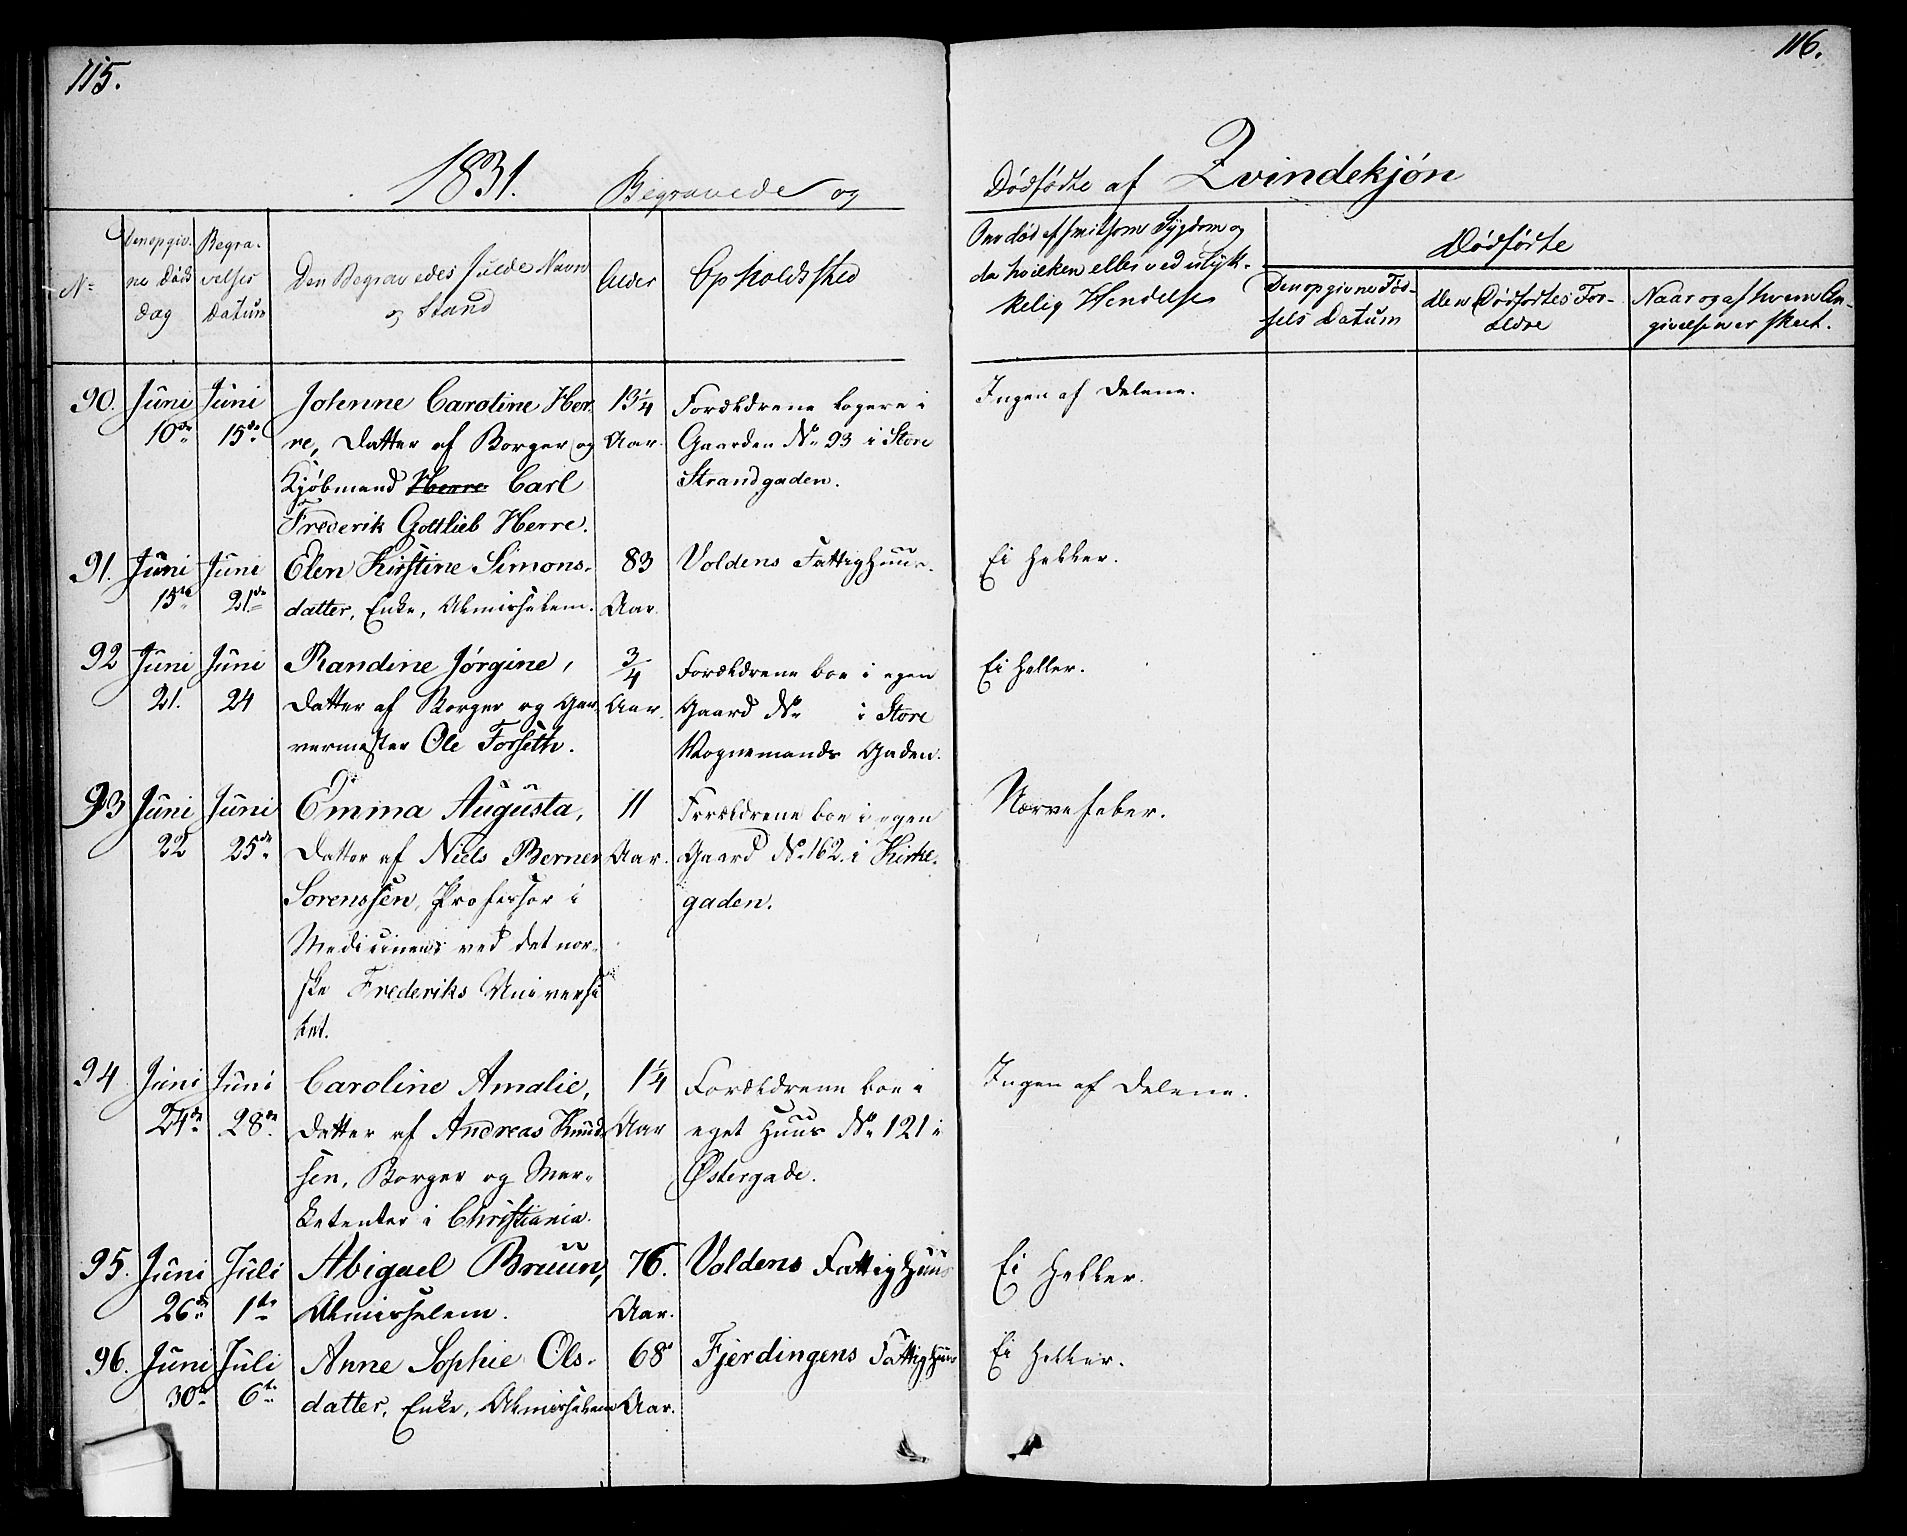 115.
116.
1831. Begravede og
Dødfødte af Qvindekjøn
No
Den opgiv-
ne Døds
dag
Begra-
velses
Datum
Den Begravedes fulde Navn
og Stand
Alder
Opholdssted
Om død af smitsom Sygdom og
da hvilken eller ved ulyk-
kelig Hendelse
Dødfødte
Den opgivne Fød-
sels Datum
den Dødfødtes For-
ældre
Naar og af hvem An-
givelsen er skeet.
90. Juni Juni Johnne Caroline Her- 13¼ Forældrene logere i Ingen af Delene.
10de 15de re, Datter af Borger og Aar. Gaarden No 93 i Store
Kjøbmand Herre Carl Strandgaden.
Frederik Gottlieb Herre.
91. Juni Juni Elen Kirstine Simons- 83 Voldens Fattighuus. Ei heller.
15de 21de datter, Enke, Almisselem. Aar.
92 Juni Juni Randine Jørgine, ¾ Forældrene boe i egen Ei heller.
21. 24 Datter af Borger og Gar- Aar. Gaard No i Store
vermester Ole Forseth. Vognemands Gaden.
93 Juni Juni Emma Augusta, 11 Forældrene boe i egen Nervefeber.
22 25de Datter af Niels Berner Aar. Gaard No 162. i Kirke-
Sorenssen, Professor i gaden.
Medicinen ved det nor-
ske Frederiks Universi
tet.
94 Juni Juni Caroline Amalie, 1¼ Forældrene boe i Ingen af Delene.
24de 28de Datter af Andreas Knud Aar eget Huus No 121 i
sen, Borger og Mar- Østergade.
ketenter i Christiania.
95. Juni Juli Abigael Bruun, 76. Voldens Fattighuus Ei heller.
26de 1ste Almisselem. Aar.
96. Juni Juli Anne Sophie Ols- 68 Fjerdingens Fattighuus Ei heller.
30te 6te datter, Enke, Almisselem Aar.